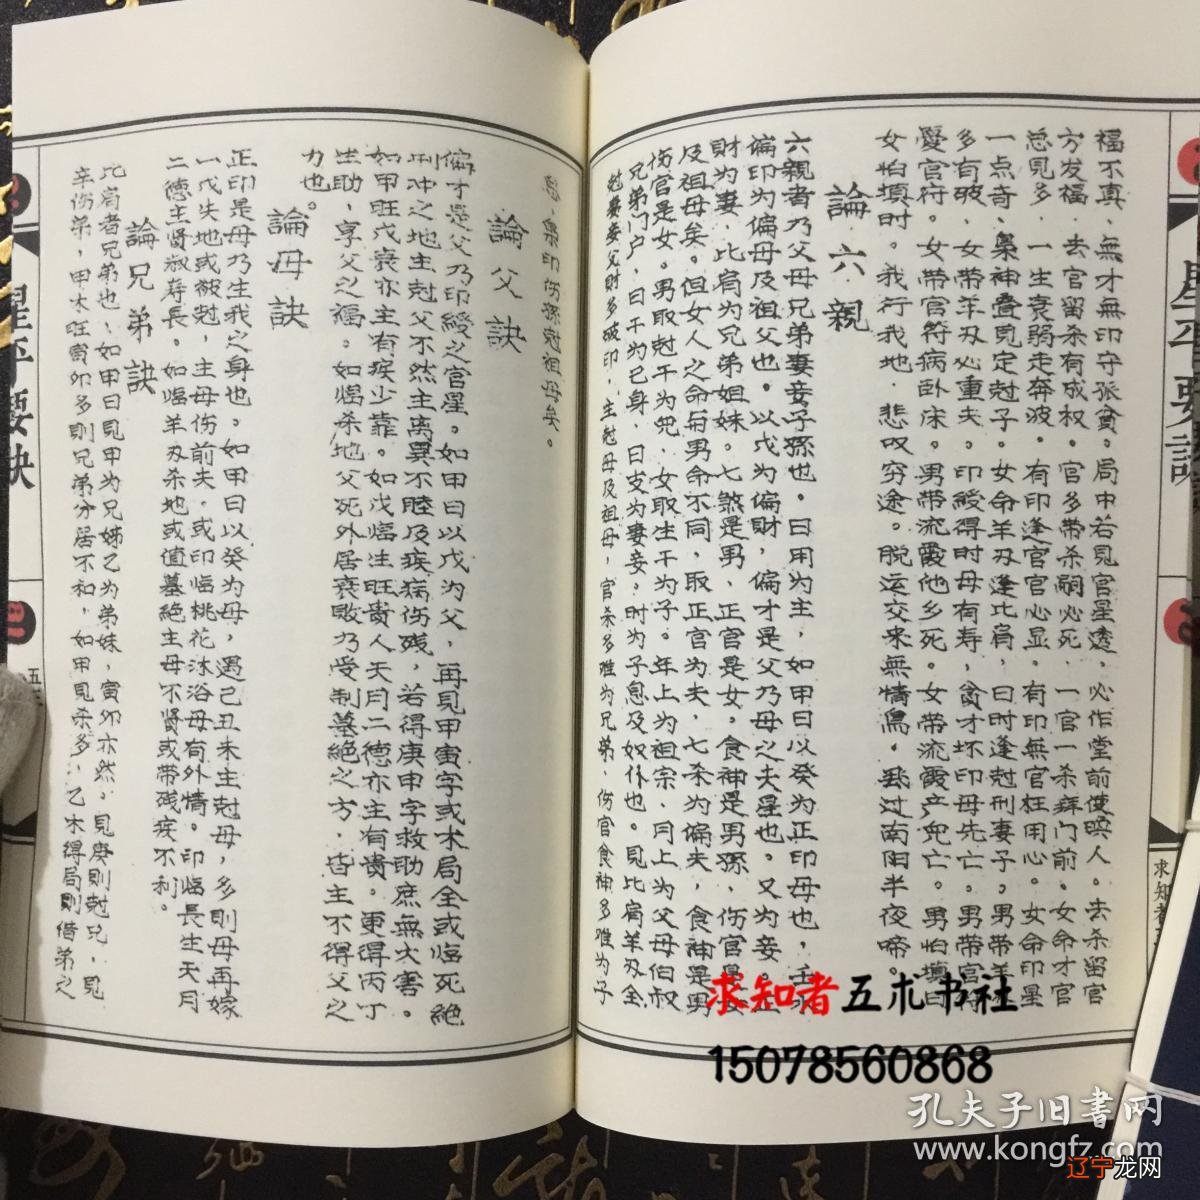 福不真，無才無印守孤貧。局中若見官星透，必作堂前使喚人。去杀留官
方发福，去官留杀有成权。官多带杀嗣必死，一官一杀病门前。女命才官
总見多，一生衰弱走奔波。有印逢官官必显。有印無官枉用心。女命印星
一点奇，梟神叠見定尅子。女命羊刃逢比肩，曰时逢尅刑妻子。男带羊刃
多有破，女带羊刃必重夫。印綬得时母有寿，貪才坏印母先亡。男带官符
爱官府。女带官符病卧床。男带流霞他乡死。女带流霞产死亡。男怕填日
女怕填时。我行我地，悲叹穷途。脱运交来無情鳥。飛过南阳半夜啼。
論六親
六親者乃父母兄弟妻妾子孫也。日用为主，如甲日以癸为正印母也，壬水
偏印为偏母及祖父也。以戊为偏財，偏才是父乃母之夫星也。又为妾。正
財为妻，比肩为兄弟姐妹。七煞是男，正官是女。食神是男孫，伤官是女
及祖母矣。但女人之命與男命不同，取正官为夫，七杀为偏夫，食神是男
伤官是女。男取尅干为児，女取生干为子。年上为祖宗，月上为父母伯叔
兄弟门户，日干为己身，日支为妻妾。时为子息及奴仆也。見比肩羊刃全
尅妻妾父財多破印，主尅母及祖母，官杀多难为兄弟，伤官食神多难为子
息，梟印伤孫尅祖母矣。
論父訣
偏才是父乃印綬之官星。如甲日以戊为父，再見甲寅字或木局全或临死絶
刑冲之地主尅父不然主离異不睦及疾病伤残，若得庚申字救助庶無大害。
如甲旺戊衰亦主有疾少靠。如戊临生旺貴人天月二德亦主有貴。更得丙丁
生助，享父之福。如临杀地父死外居衰敗乃受制墓絶之方，皆主不得父之
力也。
論母訣
正印是母乃生我之身也。如甲日以癸为母，遇己丑未主尅母，多則母再嫁
一戊失地或被尅，主母伤前夫。或印临桃花沐浴母有外情。印临長生天月
二德主賢淑寿長。如临羊刃杀地或值墓絶主母不賢或带残疾不利。
論兄弟訣
比肩者兄弟也，如甲日見甲为兄姊乙为弟妹，寅卯亦然。見庚則尅兄，見
辛伤弟，甲木旺寅卯多則兄弟分居不和，如甲見杀多，乙木得局則借弟之
星平要訣
星平要訣
求知者
求知者五术书社
15078560868
孔夫子旧書网
www.kongfz.com
辽宁龙网